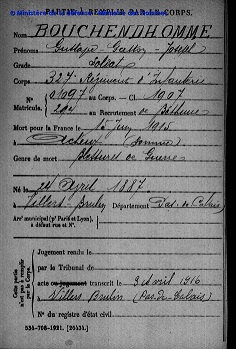 PARTIE À REMPLIR PAR LE CORPS.
© Ministère
Nom BOUCHENDHOMME
Prénoms Gustave Gaston Joseph
Grade Soldat
Corps 327e Régiment d'Infanterie
N° 01097 au Corps. — Cl. 1907
Matricule. au Recrutement de Béthune
Mort pour la France le Juin 1915
à (Somme)
Genre de mort Blessures de Guerre
Né le 24 Avril 1887
à Villers-Brulin Département Pas-de-Calais
Arr' municipal (p' Paris et Lyon),
à défaut rue et N°.
Cette partie n'est pas à remplir par le Corps.
Jugement rendu le
par le Tribunal de
acte ou jugement transcrit le 9 avril 1916
à Villers Brulin (Pas-de-Calais)
N° du registre d'état civil
534-708-1921. [26434.]